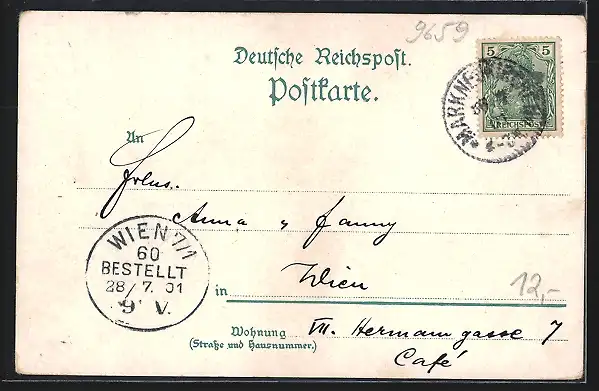 9659
Deutsche Reichspost.
Postkarte.
5 5
REICHSPOST
An
Frlns.
Anna u Fanny
WIEN 7/1
60
BESTELLT
28/ 7. 01
9 V.
Wien
12,-
in
Wohnung VII. Hermanngasse 7
(Straße und Hausnummer.)
Café